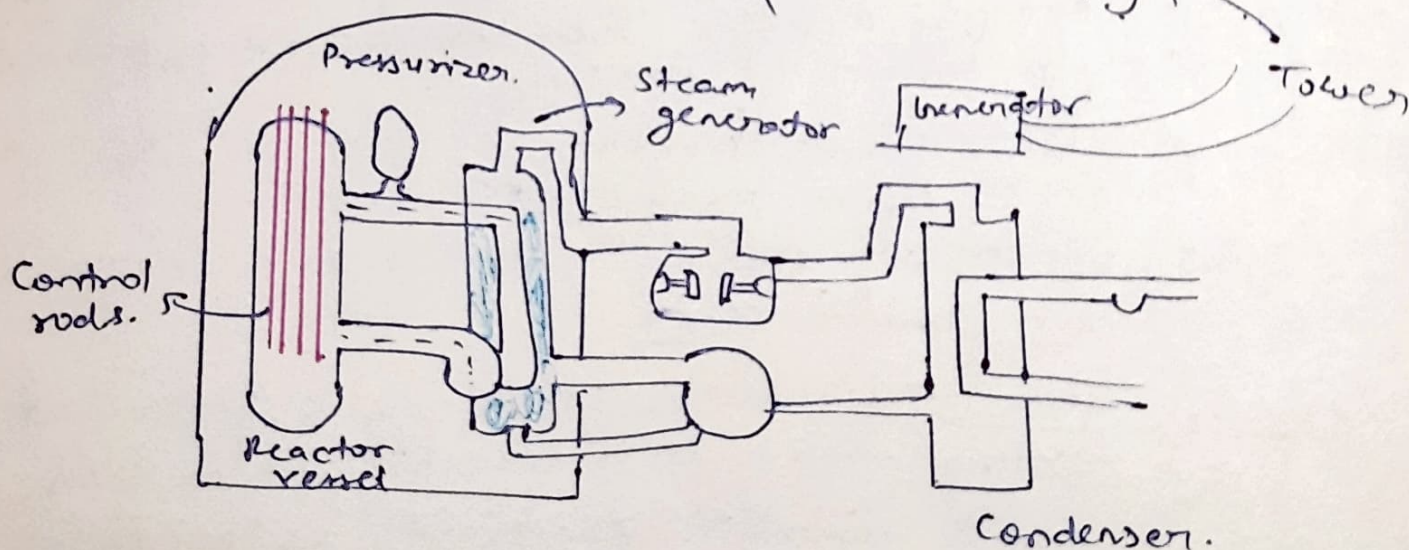 Pressurizer.
Steam
generator
Generator
Tower
Control
rods.
Reactor
vessel
Condenser.